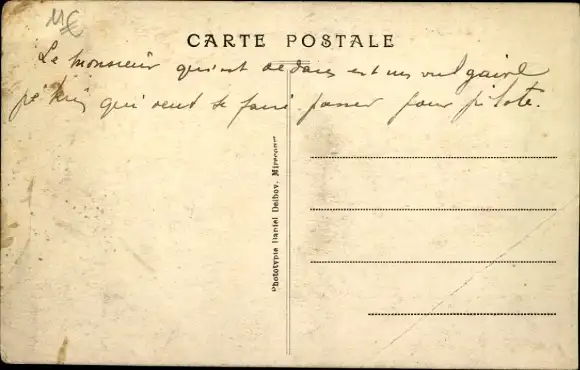 11€
CARTE POSTALE
Le monsieur qui est dedans est un vulgaire
pékin qui veut se faire passer pour pilote.
Phototypie Daniel Delboy, Mirecourt